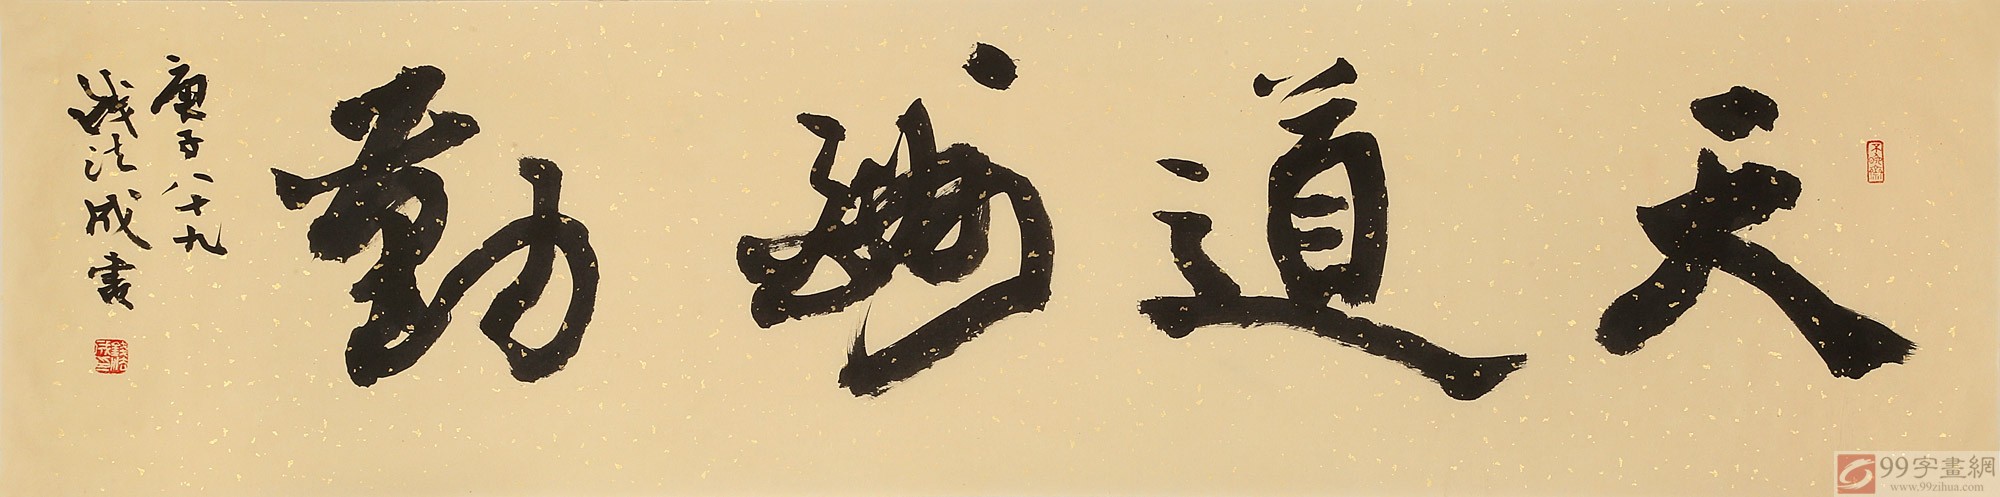 天道酬勤
庚子八十九
钱法成書
錢法成印
99字畫網
www.99zihua.com